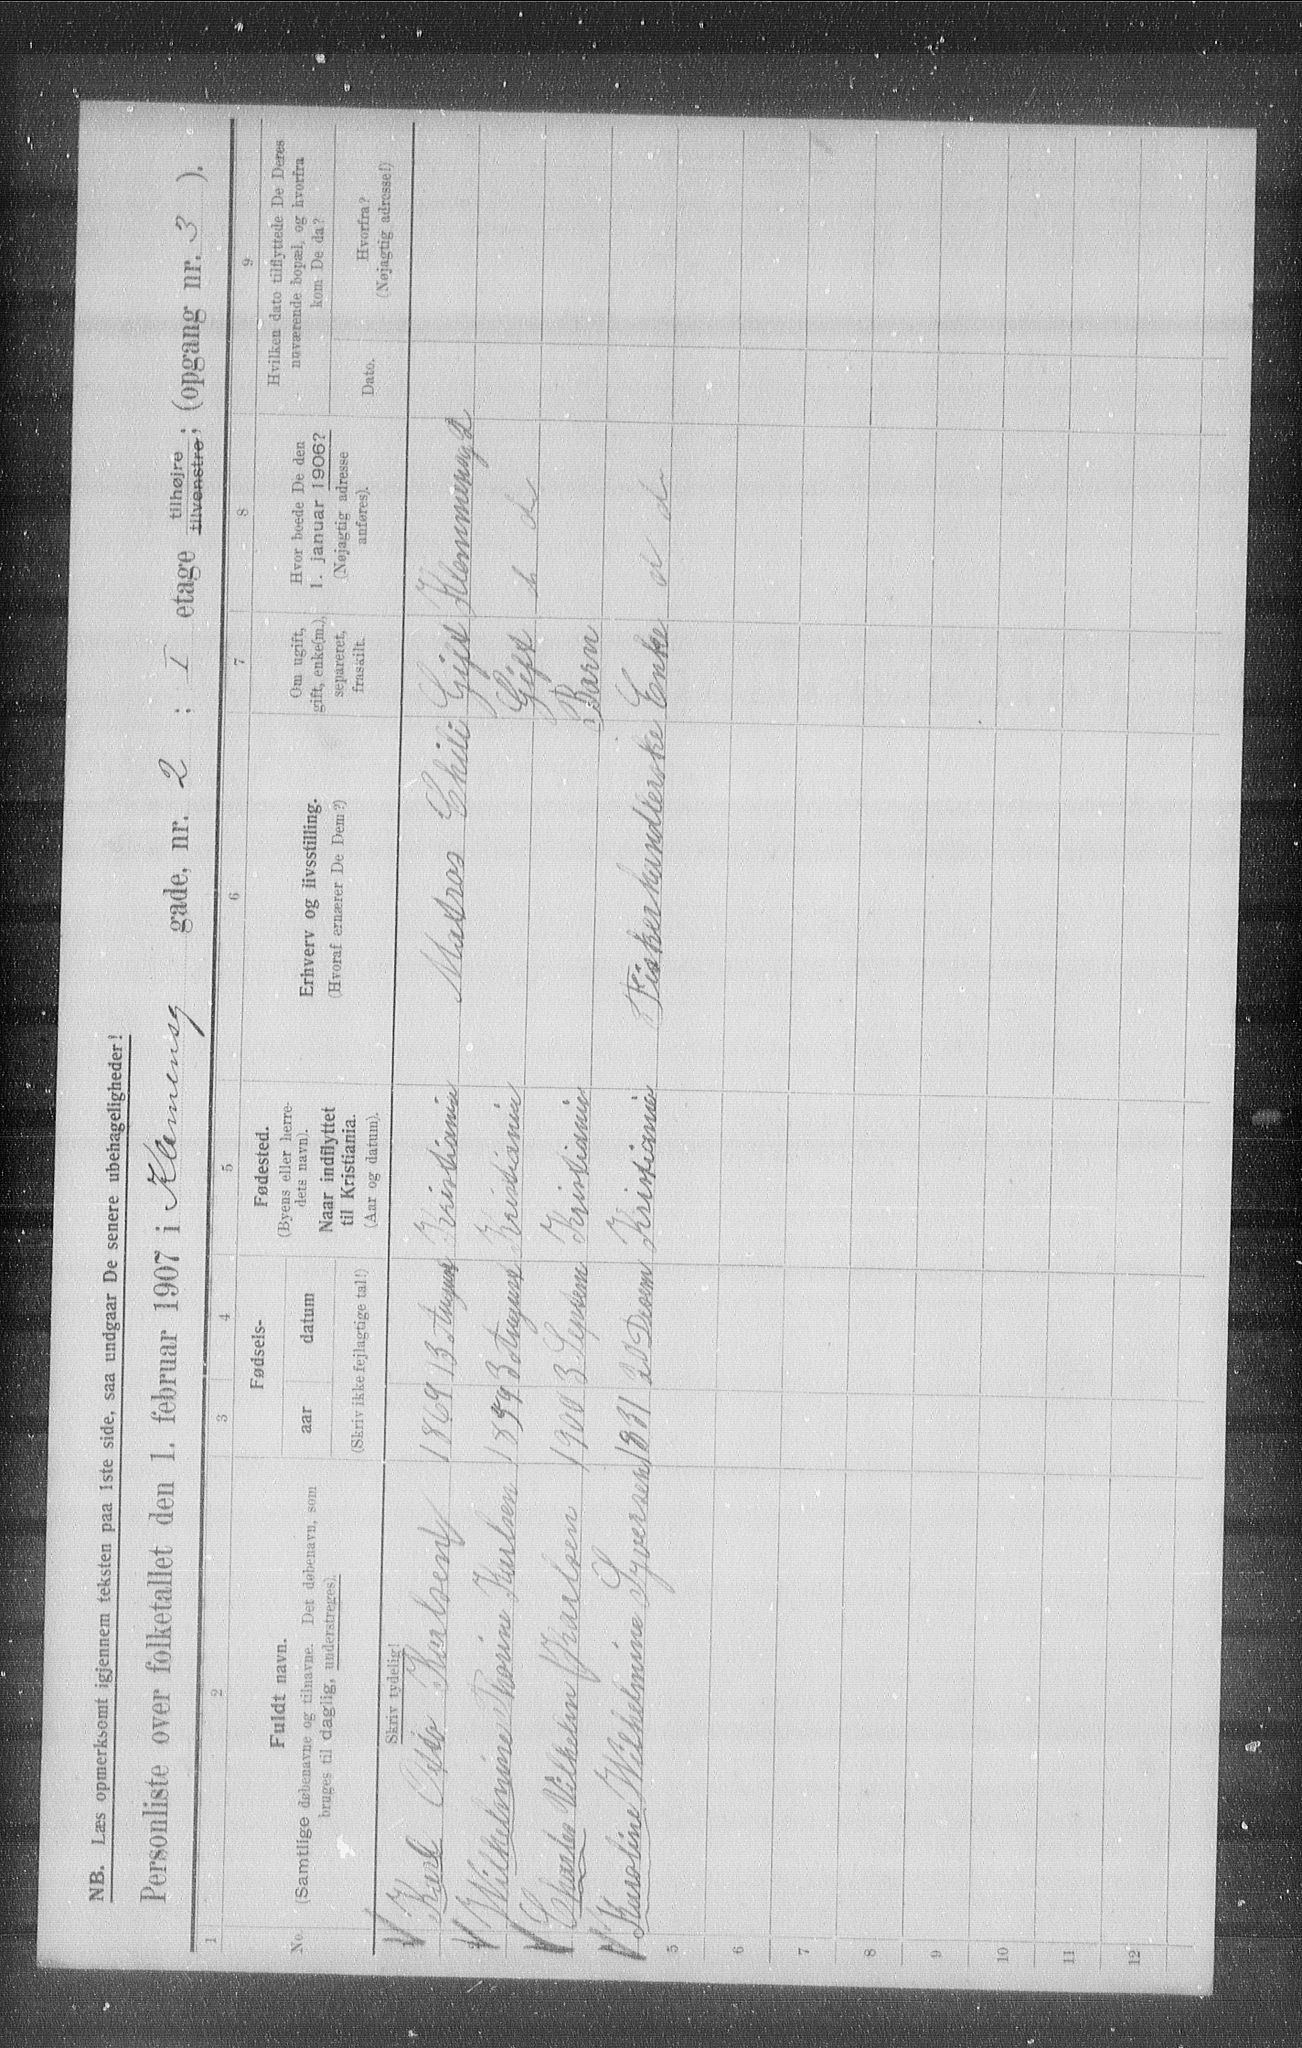 NB. Læs opmerksomt igjennem teksten paa 1ste side, saa undgaar De senere ubehageligheder!
Personliste over folketallet den 1. februar 1907 i Klemensg gade, nr. 2 ; I etage tilhøjre tilvenstre; (opgang nr. 3 ).
1 2 3 4 5 6 7 8 9
No.
Fuldt navn.
(Samtlige døbenavne og tilnavne. Det døbenavn, som
bruges til daglig, understreges).
Fødsels-
aar datum
(Skriv ikke fejlagtige tal!)
Fødested.
(Byens eller herre-
dets navn).
Naar indflyttet
til Kristiania.
(Aar og datum).
Erhverv og livsstilling.
(Hvoraf ernærer De Dem?)
Om ugift,
gift, enke(m.),
separeret,
fraskilt.
Hvor boede De den
1. januar 1906?
(Nøjagtig adresse
anføres).
Hvilken dato tilflyttede De Deres
nuværende bopæl, og hvorfra
kom De da?
Dato.
Hvorfra?
(Nøjagtig adresse!)
Skriv tydelig!
Karl Otto Karlsen 1869 13 August Kristiania Matros Chili Gift Klemmensg 2
Wilhelmine Thorine Karlsen 3 August Kristiania Gift d d
Charles Vilhelm Karlsen 1900 3 Septem Kristiania Barn
Karoline Wilhelmine Syversen 1831 20 Decem Kristiania Fiskerhandlerske Enke d d
5
6
7
8
9
10
11
12